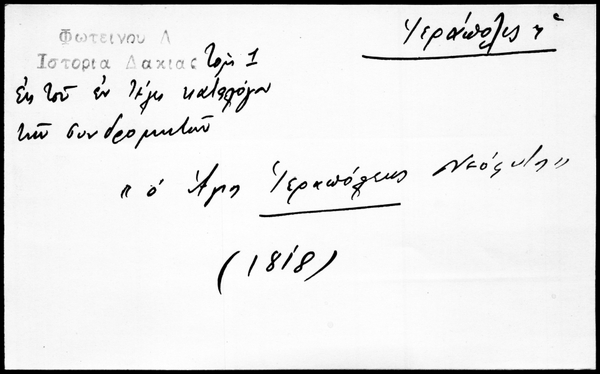 Ἱεράπολις ἡ
Φωτεινου Δ
Ιστορια Δακιας Τομ 1
Ἐκ τοῦ ἐν τέλει καταλόγου
τῶν συνδρομητῶν
"ὁ Ἅγιος Ἱεραπόλεως Νεόφυτος"
(1818)